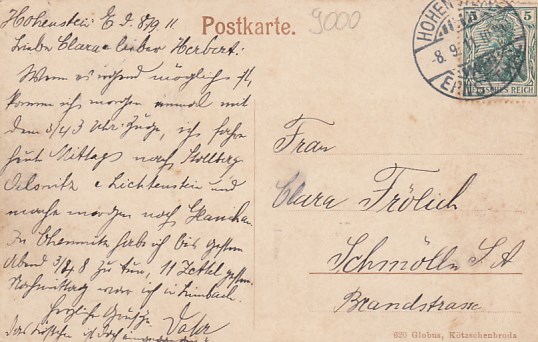 Hohenstein E d. 8/9 11
Postkarte.
9000
Liebe Clara e lieber Herbert!
Wenn es irgend möglich ist,
komme ich morgen einmal mit
dem 3/4 3 Uhr Zuge, ich fahre
heut Mittag nach Stollberg
Oelsnitz e Lichtenstein und
mache morgen nach
In Chemnitz hab ich bis gestern
Abend 3/4 8 zu tun, 11 Zettel gestern
Nachmittag war ich in Limbach.
Herzliche Grüße
Das ist doch
HOHENSTEIN
-8.9.
ERNST
5
DEUTSCHES REICH
Frau
Clara Frölich
Schmölln S. A
Brandstrasse
620 Globus, Kötzschenbroda